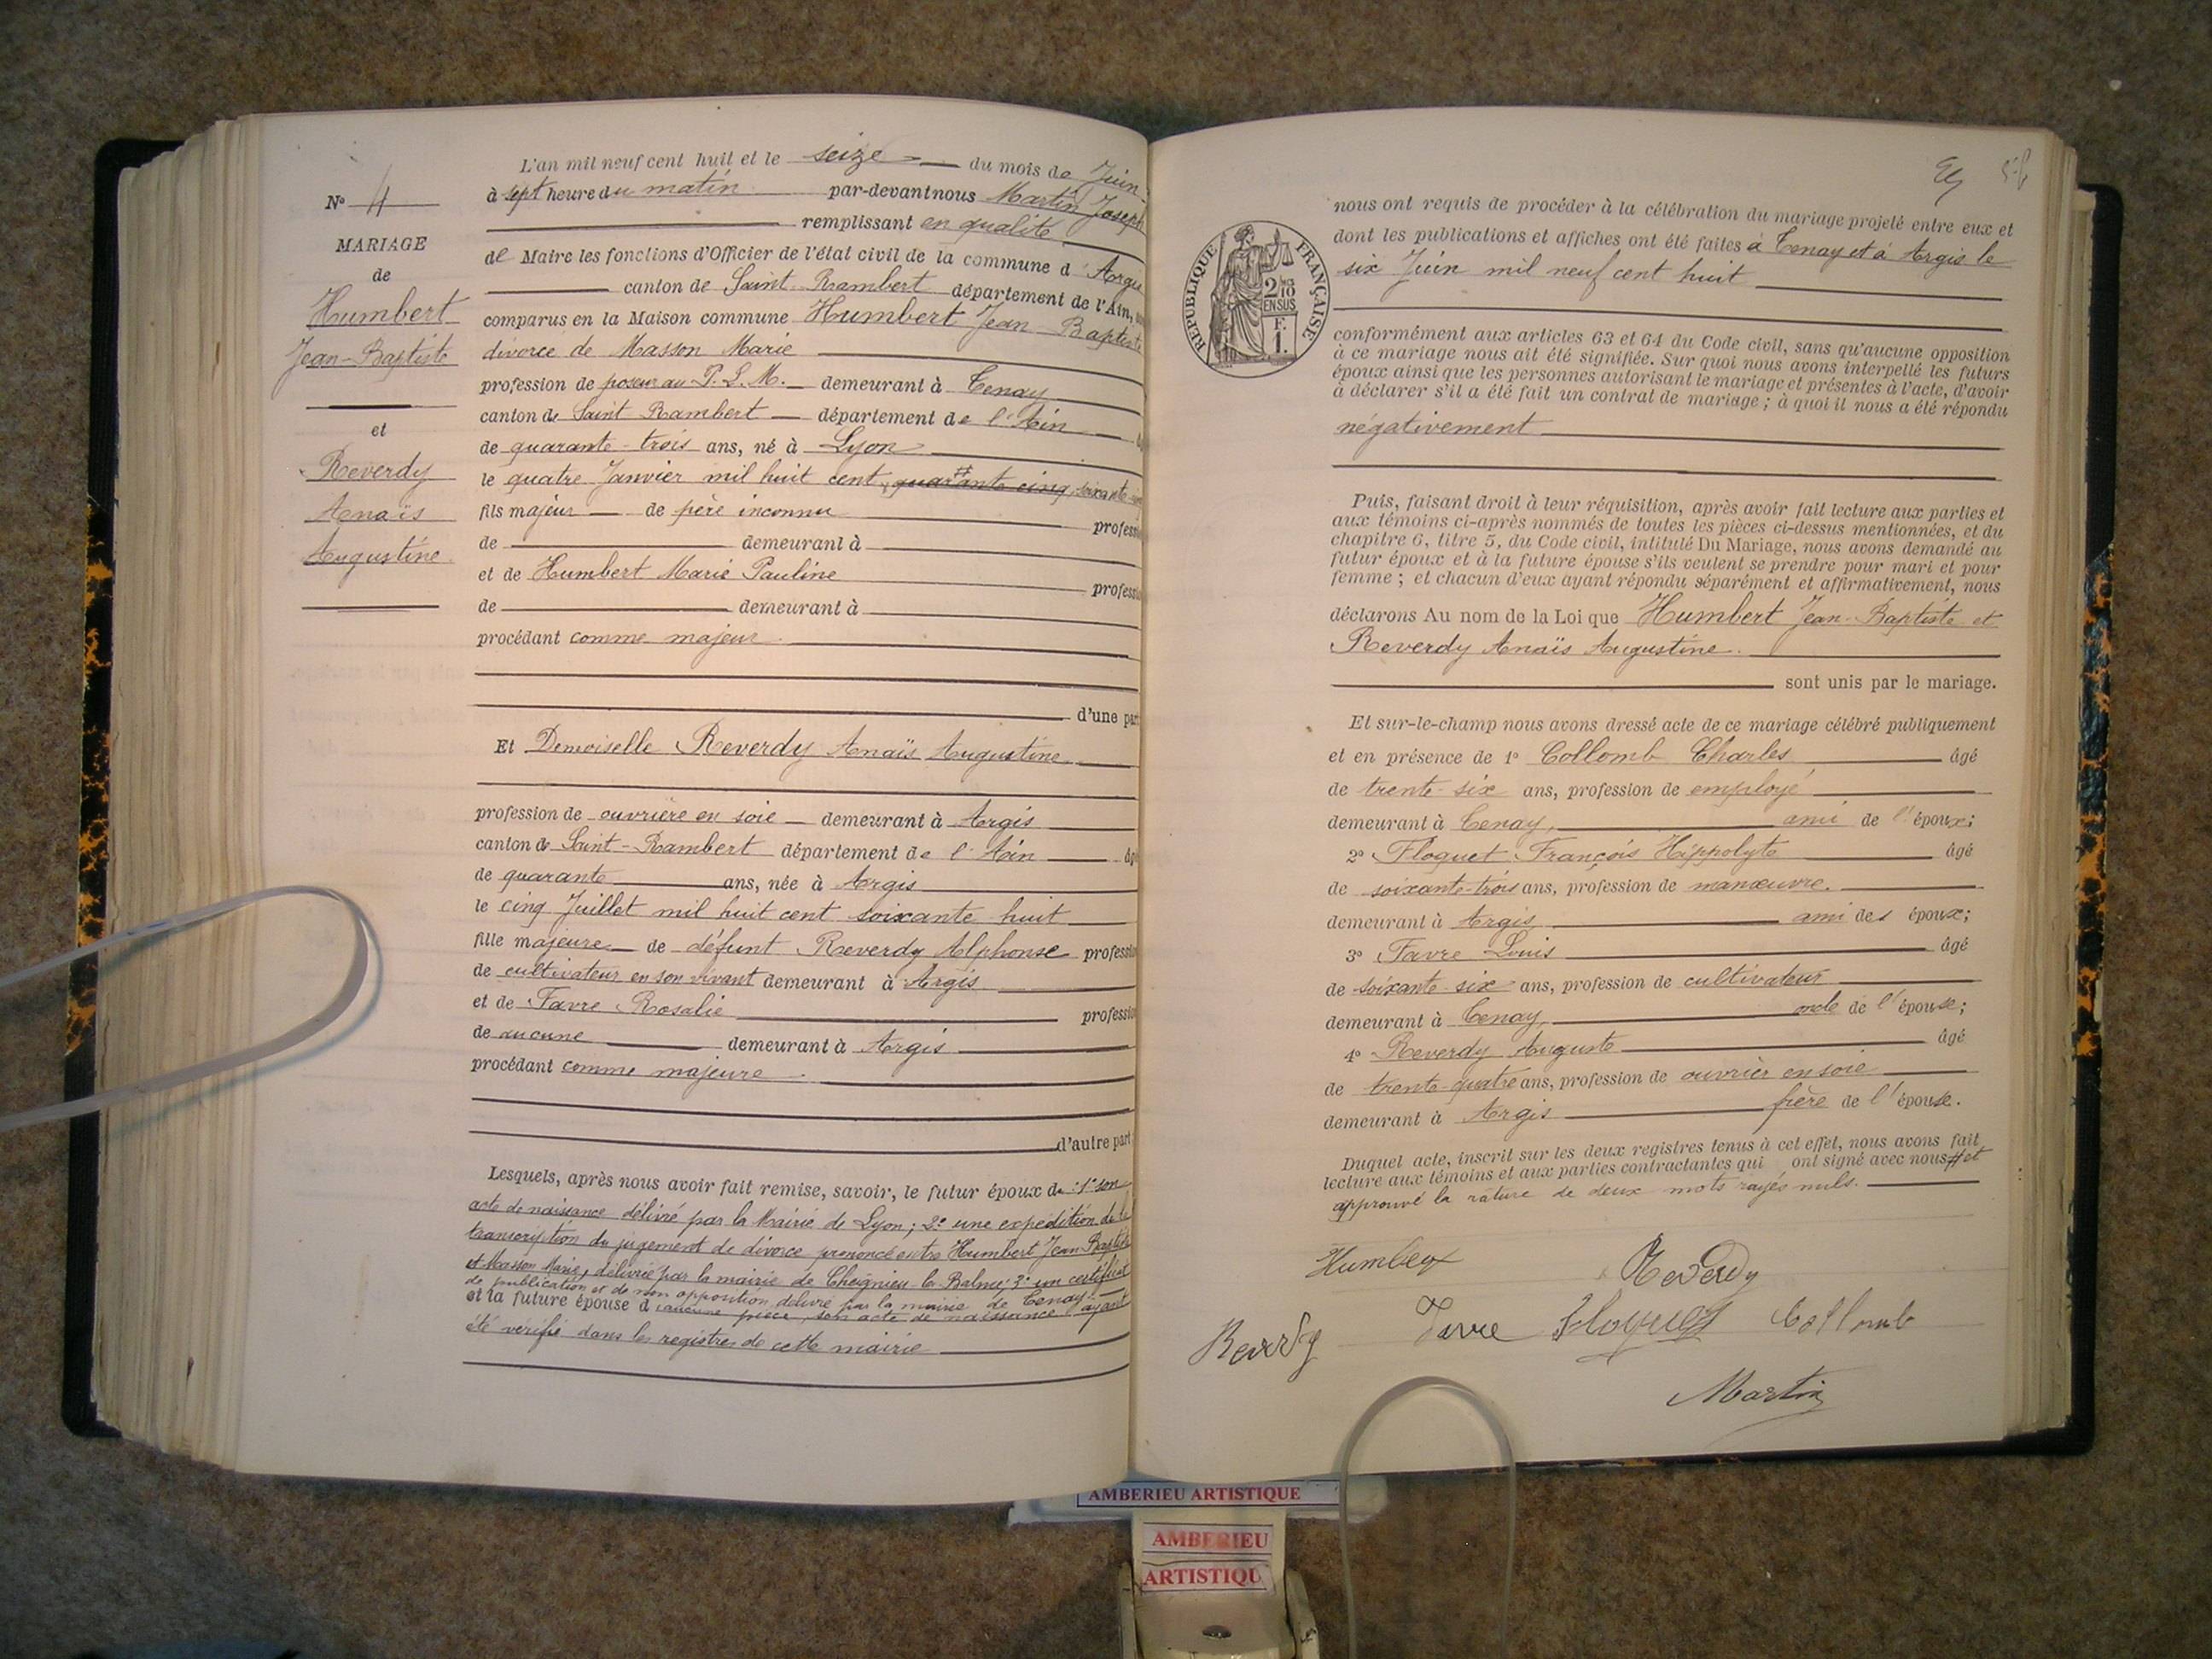 L'an mil neuf cent huit et le seize du mois de Juin
à sept heure du matin par-devant nous Martin Joseph
remplissant en qualité
de Maire les fonctions d'Officier de l'état civil de la commune d'Argis
canton de Saint-Rambert département de l'Ain,
comparus en la Maison commune Humbert Jean-Baptiste
divorcé de Masson Marie
profession de poseur au P.L.M. demeurant à Tenay
canton de Saint Rambert département de l'Ain
de quarante-trois ans, né à Lyon
le quatre Janvier mil huit cent quarante cinq soixante
fils majeur de père inconnu profess
de demeurant à
et de Humbert Marie Pauline profess
de demeurant à
procédant comme majeur.
d'une part
Et Demoiselle Reverdy Anaïs Augustine
profession de ouvrière en soie demeurant à Argis
canton de Saint-Rambert département de l'Ain âg
de quarante ans, née à Argis
le cinq Juillet mil huit cent soixante huit
fille majeure de défunt Reverdy Alphonse profession
de cultivateur en son vivant demeurant à Argis
et de Favre Rosalie profession
de aucune demeurant à Argis
procédant comme majeure.
d'autre part
Lesquels, après nous avoir fait remise, savoir, le futur époux de : 1° son
acte de naissance délivré par la Mairie de Lyon ; 2° une expédition de la
transcription du jugement de divorce prononcé entre Humbert Jean-Baptiste
et Masson Marie, délivrée par la mairie de Cheignieu-la-Balme ; 3° un certificat
de publication et de non opposition délivré par la mairie de Tenay
et la future épouse d'aucune pièce, son acte de naissance ayant
été vérifié dans les registres de cette mairie
N° 4
MARIAGE
de
Humbert
Jean-Baptiste
et
Reverdy
Anaïs
Augustine
nous ont requis de procéder à la célébration du mariage projeté entre eux et
dont les publications et affiches ont été faites à Tenay et à Argis le
six Juin mil neuf cent huit
RÉPUBLIQUE FRANÇAISE
2/10
EN SUS
F.
1.
conformément aux articles 63 et 64 du Code civil, sans qu'aucune opposition
à ce mariage nous ait été signifiée. Sur quoi nous avons interpellé les futurs
époux ainsi que les personnes autorisant le mariage et présentes à l'acte, d'avoir
à déclarer s'il a été fait un contrat de mariage ; à quoi il nous a été répondu
négativement
Puis, faisant droit à leur réquisition, après avoir fait lecture aux parties et
aux témoins ci-après nommés de toutes les pièces ci-dessus mentionnées, et du
chapitre 6, titre 5, du Code civil, intitulé Du Mariage, nous avons demandé au
futur époux et à la future épouse s'ils veulent se prendre pour mari et pour
femme ; et chacun d'eux ayant répondu séparément et affirmativement, nous
déclarons Au nom de la Loi que Humbert Jean-Baptiste et
Reverdy Anaïs Augustine.
sont unis par le mariage.
Et sur-le-champ nous avons dressé acte de ce mariage célébré publiquement
et en présence de 1° Collomb Charles âgé
de trente-six ans, profession de employé
demeurant à Tenay, ami de l'époux ;
2° Floquet François Hippolyte âgé
de soixante-trois ans, profession de manœuvre.
demeurant à Argis ami des époux ;
3° Favre Louis âgé
de soixante-six ans, profession de cultivateur
demeurant à Tenay, oncle de l'épouse ;
4° Reverdy Auguste âgé
de trente-quatre ans, profession de ouvrier en soie
demeurant à Argis frère de l'épouse.
Duquel acte, inscrit sur les deux registres tenus à cet effet, nous avons fait
lecture aux témoins et aux parties contractantes qui ont signé avec nous # et
approuvé la rature de deux mots rayés nuls.
Humbert Reverdy
Reverdy Favre Floquet Collomb
Martin
AMBERIEU ARTISTIQUE
AMBERIEU
ARTISTIQU